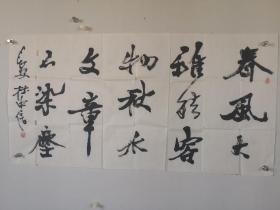 春風大
雅能容
物秋水
文章
不染塵